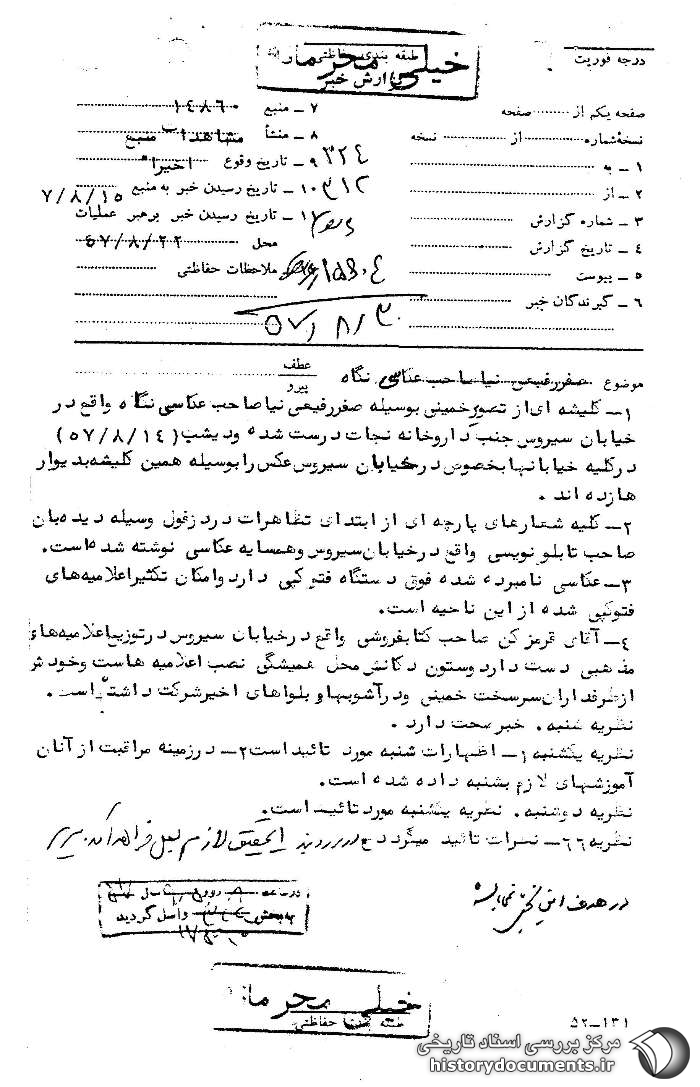 درجه فوریت
طبقه بندی حفاظتی
خیلی محرمانه
گزارش خبر
صفحه یکم از صفحه
نسخهٔ شماره از نسخه
۱ – به
۲ – از
۳ – شماره گزارش
۴ – تاریخ گزارش
۵ – پیوست
۶ – گیرندگان خبر
۷ – منبع ۱۴۸۶۰
۸ – منشأ مشاهدات منبع
۹ – تاریخ وقوع اخیراً
۱۰ – تاریخ رسیدن خبر به منبع ۷/۸/۱۵
۱۱ – تاریخ رسیدن خبر برهبر عملیات
محل ۵۷/۸/۲۲
ملاحظات حفاظتی
۳۲۴
۳۱۲
۵۷/۸/۳۰
موضوع صفر رفیعی نیا صاحب عکاسی نگاه عطف پیرو
۱– کلیشه ای از تصویر خمینی بوسیله صفر رفیعی نیا صاحب عکاسی نگاه واقع در
خیابان سیروس جنب داروخانه نجات درست شده و دیشب (۵۷/۸/۱۴)
در کلیه خیابانها بخصوص در خیابان سیروس عکس را بوسیله همین کلیشه بدیوار
ها زده اند .
۲– کلیه شعارهای پارچه ای از ابتدای تظاهرات در دزفول وسیله دیده بان
صاحب تابلو نویسی واقع در خیابان سیروس و همسایه عکاسی نوشته شده است.
۳– عکاسی نامبرده شده فوق دستگاه فتوکپی دارد و امکان تکثیر اعلامیه های
فتوکپی شده از این ناحیه است.
۴– آقای قرمز کن صاحب کتابفروشی واقع در خیابان سیروس در توزیع اعلامیه های
مذهبی دست دارد و ستون دکانش محل همیشگی نصب اعلامیه هاست و خودش
از طرفداران سرسخت خمینی و در آشوبها و بلواهای اخیر شرکت داشته است.
نظریه شنبه . خبر صحت دارد .
نظریه یکشنبه ۱– اظهارات شنبه مورد تائید است ۲– در زمینه مراقبت از آنان
آموزشهای لازم بشنبه داده شده است.
نظریه دوشنبه . نظریه یکشنبه مورد تائید است.
نظریه ۶۶– نظرات تائید میگردد
در هدف این بخش
در ساعت روز سال
به بخش واصل گردید
خیلی محرمانه
طبقه بندی حفاظتی
۵۲–۱۳۱
مرکز بررسی اسناد تاریخی
historydocuments.ir